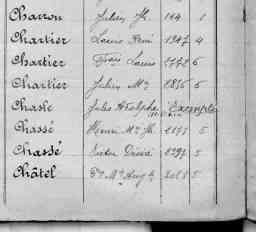 Charron Jules Jh. 144 1
Chartier Louis René 1947 4
Chartier Frois Louis 1772 6
Chartier Jules Mie 1856 6
Chasle Jules Adolphe Exempté
Chassé Henri Mie Jh. 5
Chassé Victor Désiré 1297 5
Châtel Aug 5